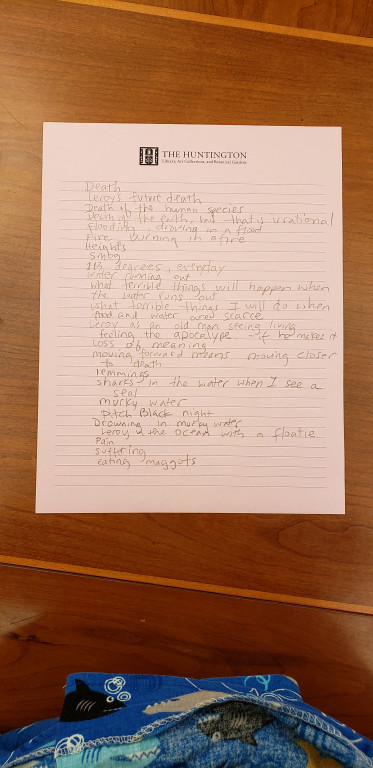 THE HUNTINGTON
Library, Art Collections, and Botanical Gardens
Death
Leroy's future death
Death of the human species
Death of the earth, but that is irational
Flooding, drowing in a flood
Fire, burning in a fire
Heights
Smog
113 degrees, everyday
water running out
what terrible things will happen when
the water runs out
what terrible things I will do when
food and water are scarce
Leroy as an old man seeing living
feeling the apocalypse - if he makes it
Loss of meaning
moving forward means moving closer
to death
lemmings
sharks in the water when I see a
seal
murky water
Pitch Black night
Drowning in murky water
Leroy & the ocean with a floatie
Pain
suffering
eating maggots